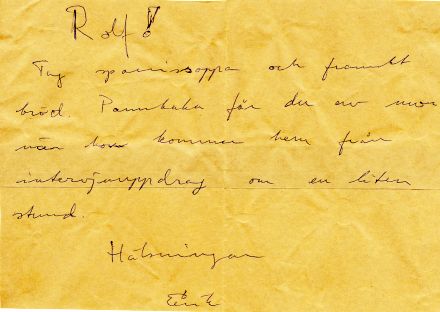 Rolf!
Tag sparrissoppa och franskt
bröd. Pannkaka får du av mor
när hon kommer hem från
intervjuuppdrag om en liten
stund.
Hälsningar
Erik